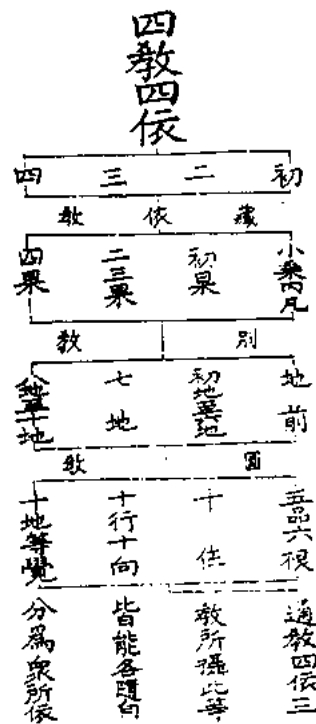 四教四依
初
二
三
四
藏依教
小乘內凡
初果
二三果
四果
別教
地前
初地至六地
七地
八地至十地
圓教
五品六根
十住
十行十向
十地等覺
通教四依三
教所攝此等
皆能各隨自
分爲衆所依